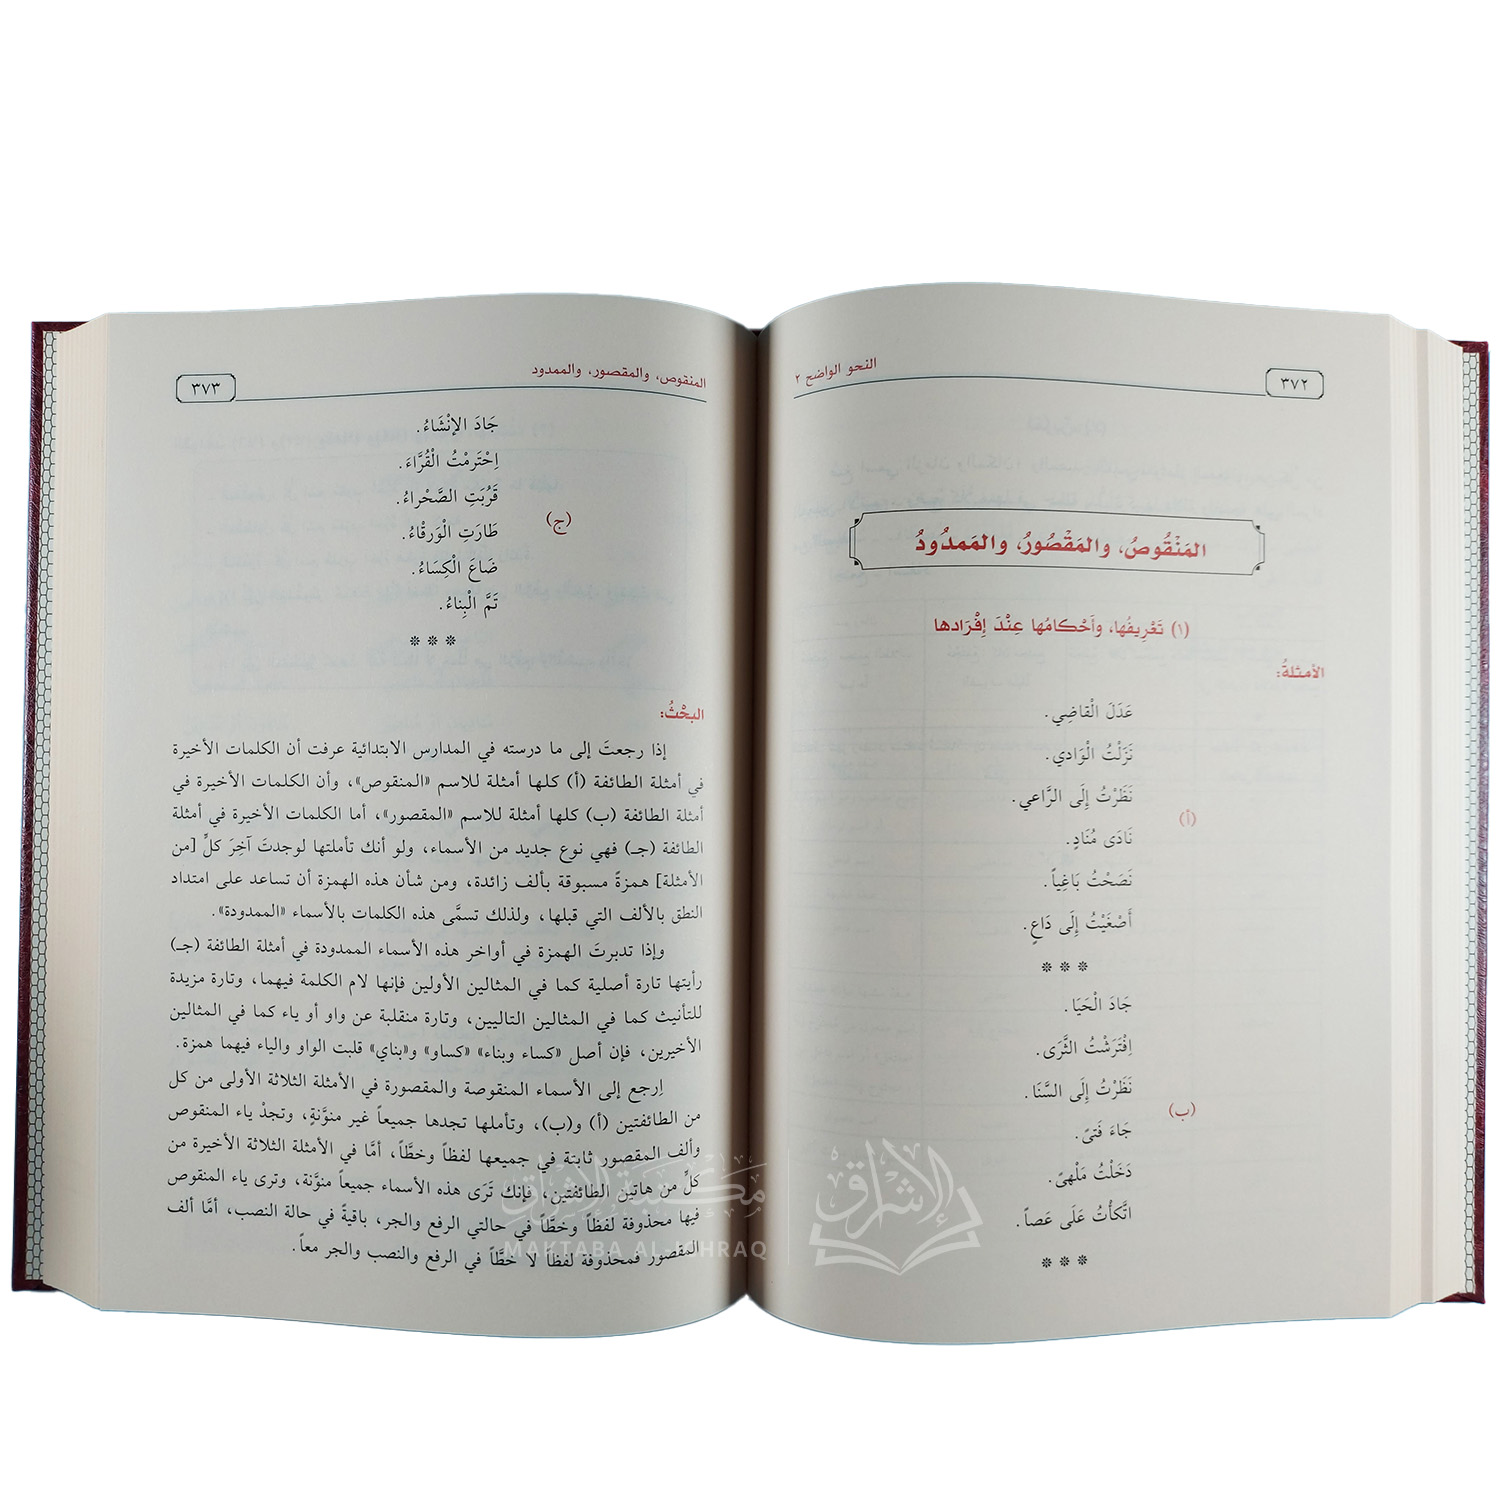 ٣٧٢
النحو الواضح ٢
المَنْقُوصُ، والمَقْصُورُ، والمَمدُودُ
(١) تَعْرِيفُها، وأحْكامُها عِنْدَ إفْرَادها
الأمثلةُ:
عَدَلَ الْقاضِي.
نَزَلْتُ الْوَادي.
نَظَرْتُ إِلَى الرَّاعي.
(أ)
نَادَى مُنَادٍ.
نَصَحْتُ بَاغِياً.
أَصْغَيْتُ إِلَى دَاعٍ.
***
جَادَ الْحَيَا.
اِفْتَرَشْتُ الثَّرَى.
نَظَرْتُ إِلَى السَّنَا.
(ب)
جَاءَ فَتىً.
دَخَلْتُ مَلْهىً.
اتَّكأتُ عَلَى عَصاً.
***
المنقوص، والمقصور، والممدود
٣٧٣
جَادَ الإنْشَاءُ.
اِحْتَرمْتُ الْقُرَّاءَ.
قَرُبَتِ الصَّحْراءُ.
(ج)
طَارَتِ الْوَرقْاءُ.
ضَاعَ الْكِسَاءُ.
تَمَّ الْبِناءُ.
***
البحْثُ:
إذا رجعتَ إلى ما درسته في المدارس الابتدائية عرفت أن الكلمات الأخيرة
في أمثلة الطائفة (أ) كلها أمثلة للاسم «المنقوص»، وأن الكلمات الأخيرة في
أمثلة الطائفة (ب) كلها أمثلة للاسم «المقصور»، أما الكلمات الأخيرة في أمثلة
الطائفة (جـ) فهي نوع جديد من الأسماء، ولو أنك تأملتها لوجدتَ آخِرَ كلٍّ [من
الأمثلة] همزةً مسبوقة بألف زائدة، ومن شأن هذه الهمزة أن تساعد على امتداد
النطق بالألف التي قبلها، ولذلك تسمَّى هذه الكلمات بالأسماء «الممدودة».
وإذا تدبرتَ الهمزة في أواخر هذه الأسماء الممدودة في أمثلة الطائفة (جـ)
رأيتها تارة أصلية كما في المثالين الأولين فإنها لام الكلمة فيهما، وتارة مزيدة
للتأنيث كما في المثالين التاليين، وتارة منقلبة عن واو أو ياء كما في المثالين
الأخيرين، فإن أصل «كساء وبناء» «كساو» و«بناي» قلبت الواو والياء فيهما همزة.
اِرجع إلى الأسماء المنقوصة والمقصورة في الأمثلة الثلاثة الأولى من كل
من الطائفتين (أ) و(ب)، وتأملها تجدها جميعاً غير منوَّنةٍ، وتجدْ ياء المنقوص
وألف المقصور ثابتة في جميعها لفظاً وخطَّاً، أمَّا في الأمثلة الثلاثة الأخيرة من
كلِّ من هاتين الطائفتين، فإنك تَرَى هذه الأسماء جميعاً منوَّنة، وترى ياء المنقوص
فيها محذوفة لفظاً وخطَّاً في حالتي الرفع والجر، باقيةً في حالة النصب، أمَّا ألف
المقصور فمحذوفة لفظاً لا خطَّاً في الرفع والنصب والجر معاً.
مكتبة الإشراق
MAKTABA AL-ISHRAQ
الإشراق